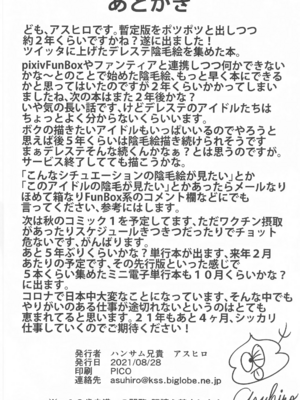 あとがき
ども、アスヒロです。暫定版をポツポツと出しつつ
約２年くらいですかね？遂に出ました！
ツイッタに上げたデレステ陰毛絵を集めた本。
pixivFunBoxやファンティアと連携しつつ何かできない
かな～とのことで始めた陰毛絵、もっと早く本にできる
かと思っていたのですが２年くらいかかってしまい
ましたね、次の本はまた２年後かな？
いや気の長い話です、けどデレステのアイドルたちは
ちょっとよく分からないくらいいます。
ボクの描きたいアイドルもいっぱいいるのでやろうと
思えば後５年くらいは陰毛絵描き続けられそうです
まぁデレステそんな続くんかなぁ？とは思うのですが。
サービス終了してても描こうかな。
「こんなシチュエーションの陰毛絵が見たい」とか
「このアイドルの陰毛が見たい」とかあったらメールなり
ほめて箱なりFunBox系のコメント欄などにでも
言ってください、参考にはします。
次は秋のコミック１を予定してます、ただワクチン摂取
があったりスケジュールきつきつだったりでチョット
危ないです、がんばります。
あと５年ぶりくらいかな？単行本が出ます、来年２月
あたりの予定です、その先行版といった感じで
５本くらい集めたミニ電子単行本も１０月くらいかな？
に出ます。
コロナで日本中大変なことになっています、そんな中でも
やりがいのある仕事が途切れないというのはとても
恵まれてると思います。２１年もあと４ヶ月、シッカリ
仕事していくのでご期待ください！
発行者　ハンサム兄貴　アスヒロ
発行日　2021/08/28
印刷　PICO
連絡先　asuhiro@kss.biglobe.ne.jp
Asuhiro